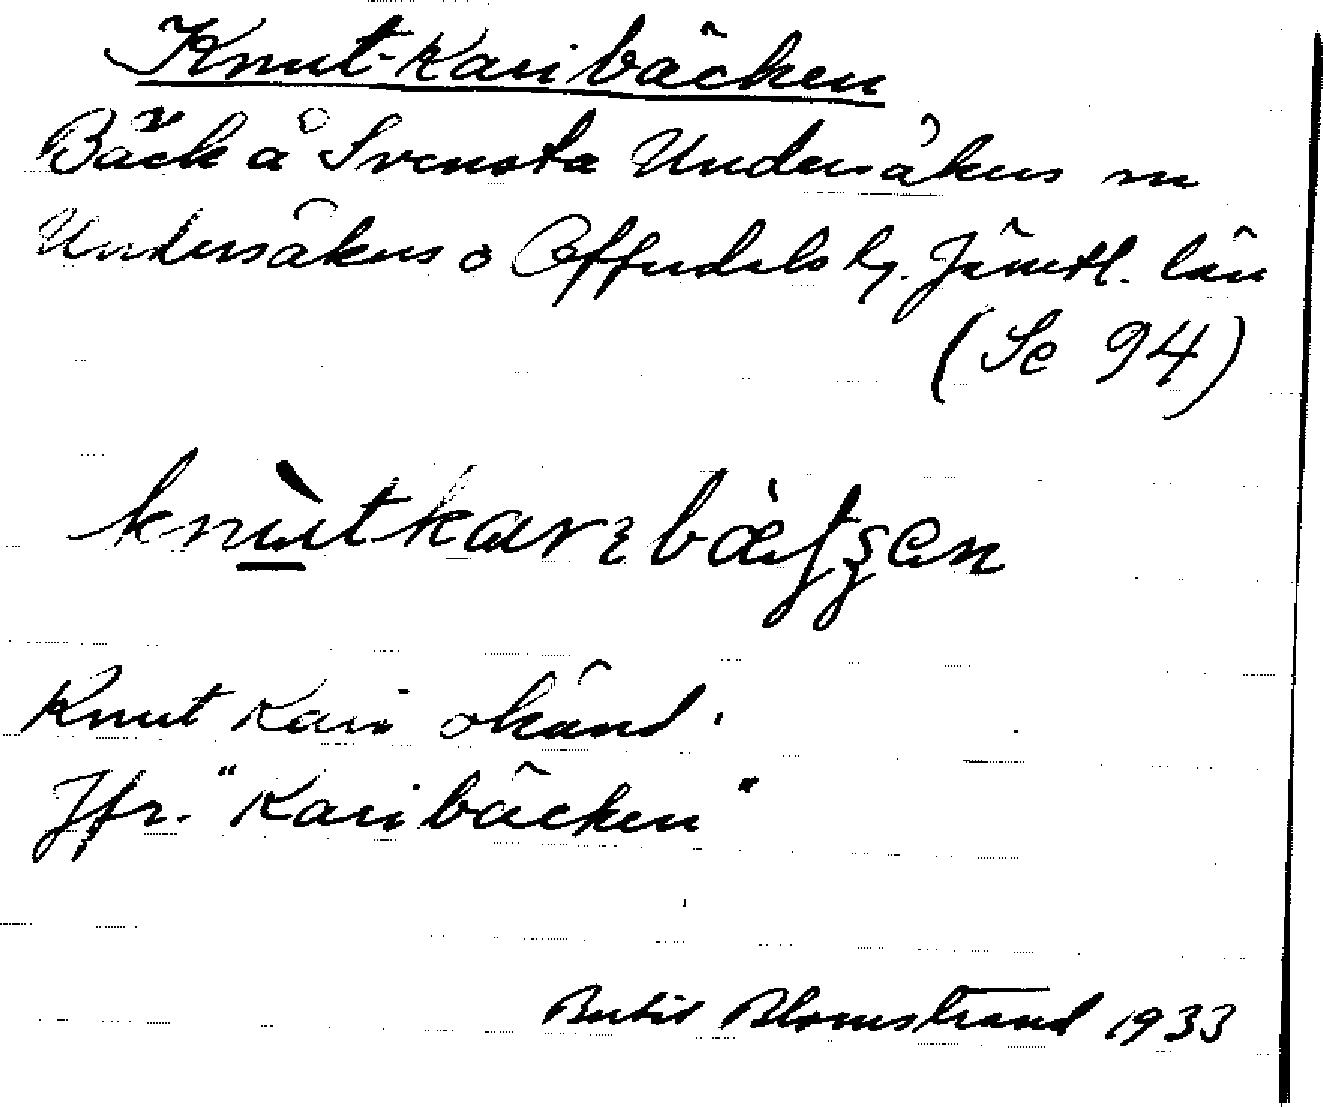 Knut-Karibäcken
Bäck å Svensta Undersåkers sn
Undersåkers o Offerdals tg. Jämtl. län
(Se 94)
knùtkarɩbæ̀tʂen
Knut Kari okänd.
Jfr. "Karibäcken"
Bertil Blomstrand 1933